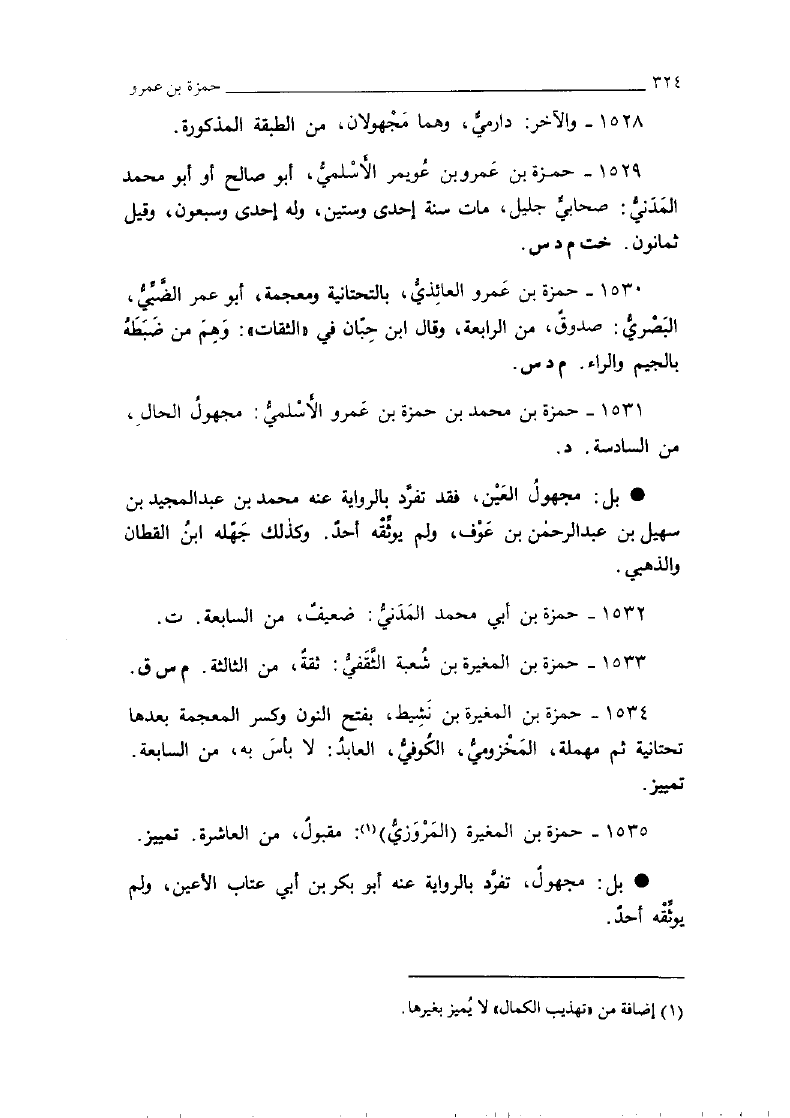 ٣٢٤ حمزة بن عمرو
١٥٢٨ - والآخر: دارميٌّ، وهما مَجْهولان، من الطبقة المذكورة.
١٥٢٩ - حمزة بن عَمرو بن عُويمر الأَسْلميُّ، أبو صالح أو أبو محمد
المَدَنيُّ: صحابيٌّ جليل، مات سنة إحدى وستين، وله إحدى وسبعون، وقيل
ثمانون. خت م د س.
١٥٣٠ - حمزة بن عَمرو العائِذيُّ، بالتحتانية ومعجمة، أبو عمر الضَّبِّيُّ،
البَصْريُّ: صدوقٌ، من الرابعة، وقال ابن حِبّان في «الثقات»: وَهِمَ من ضَبَطَهُ
بالجيم والراء. م د س.
١٥٣١ - حمزة بن محمد بن حمزة بن عَمرو الأَسْلميُّ: مجهولُ الحال،
من السادسة. د.
● بل: مجهولُ العَيْن، فقد تفرَّد بالرواية عنه محمد بن عبدالمجيد بن
سهيل بن عبدالرحمٰن بن عَوْف، ولم يوثِّقْه أحدٌ. وكذٰلك جَهّله ابنُ القطان
والذهبي.
١٥٣٢ - حمزة بن أبي محمد المَدَنيُّ: ضعيفٌ، من السابعة. ت.
١٥٣٣ - حمزة بن المغيرة بن شُعبة الثَّقَفيُّ: ثقةٌ، من الثالثة. م س ق.
١٥٣٤ - حمزة بن المغيرة بن نَشِيط، بفتح النون وكسر المعجمة بعدها
تحتانية ثم مهملة، المَخْزوميُّ، الكُوفيُّ، العابدُ: لا بأسَ به، من السابعة.
تمييز.
١٥٣٥ - حمزة بن المغيرة (المَرْوَزيُّ)(١): مقبولٌ، من العاشرة. تمييز.
● بل: مجهولٌ، تفرَّد بالرواية عنه أبو بكر بن أبي عتاب الأعين، ولم
يوثِّقْه أحدٌ.
(١) إضافة من «تهذيب الكمال» لا يُميز بغيرها.